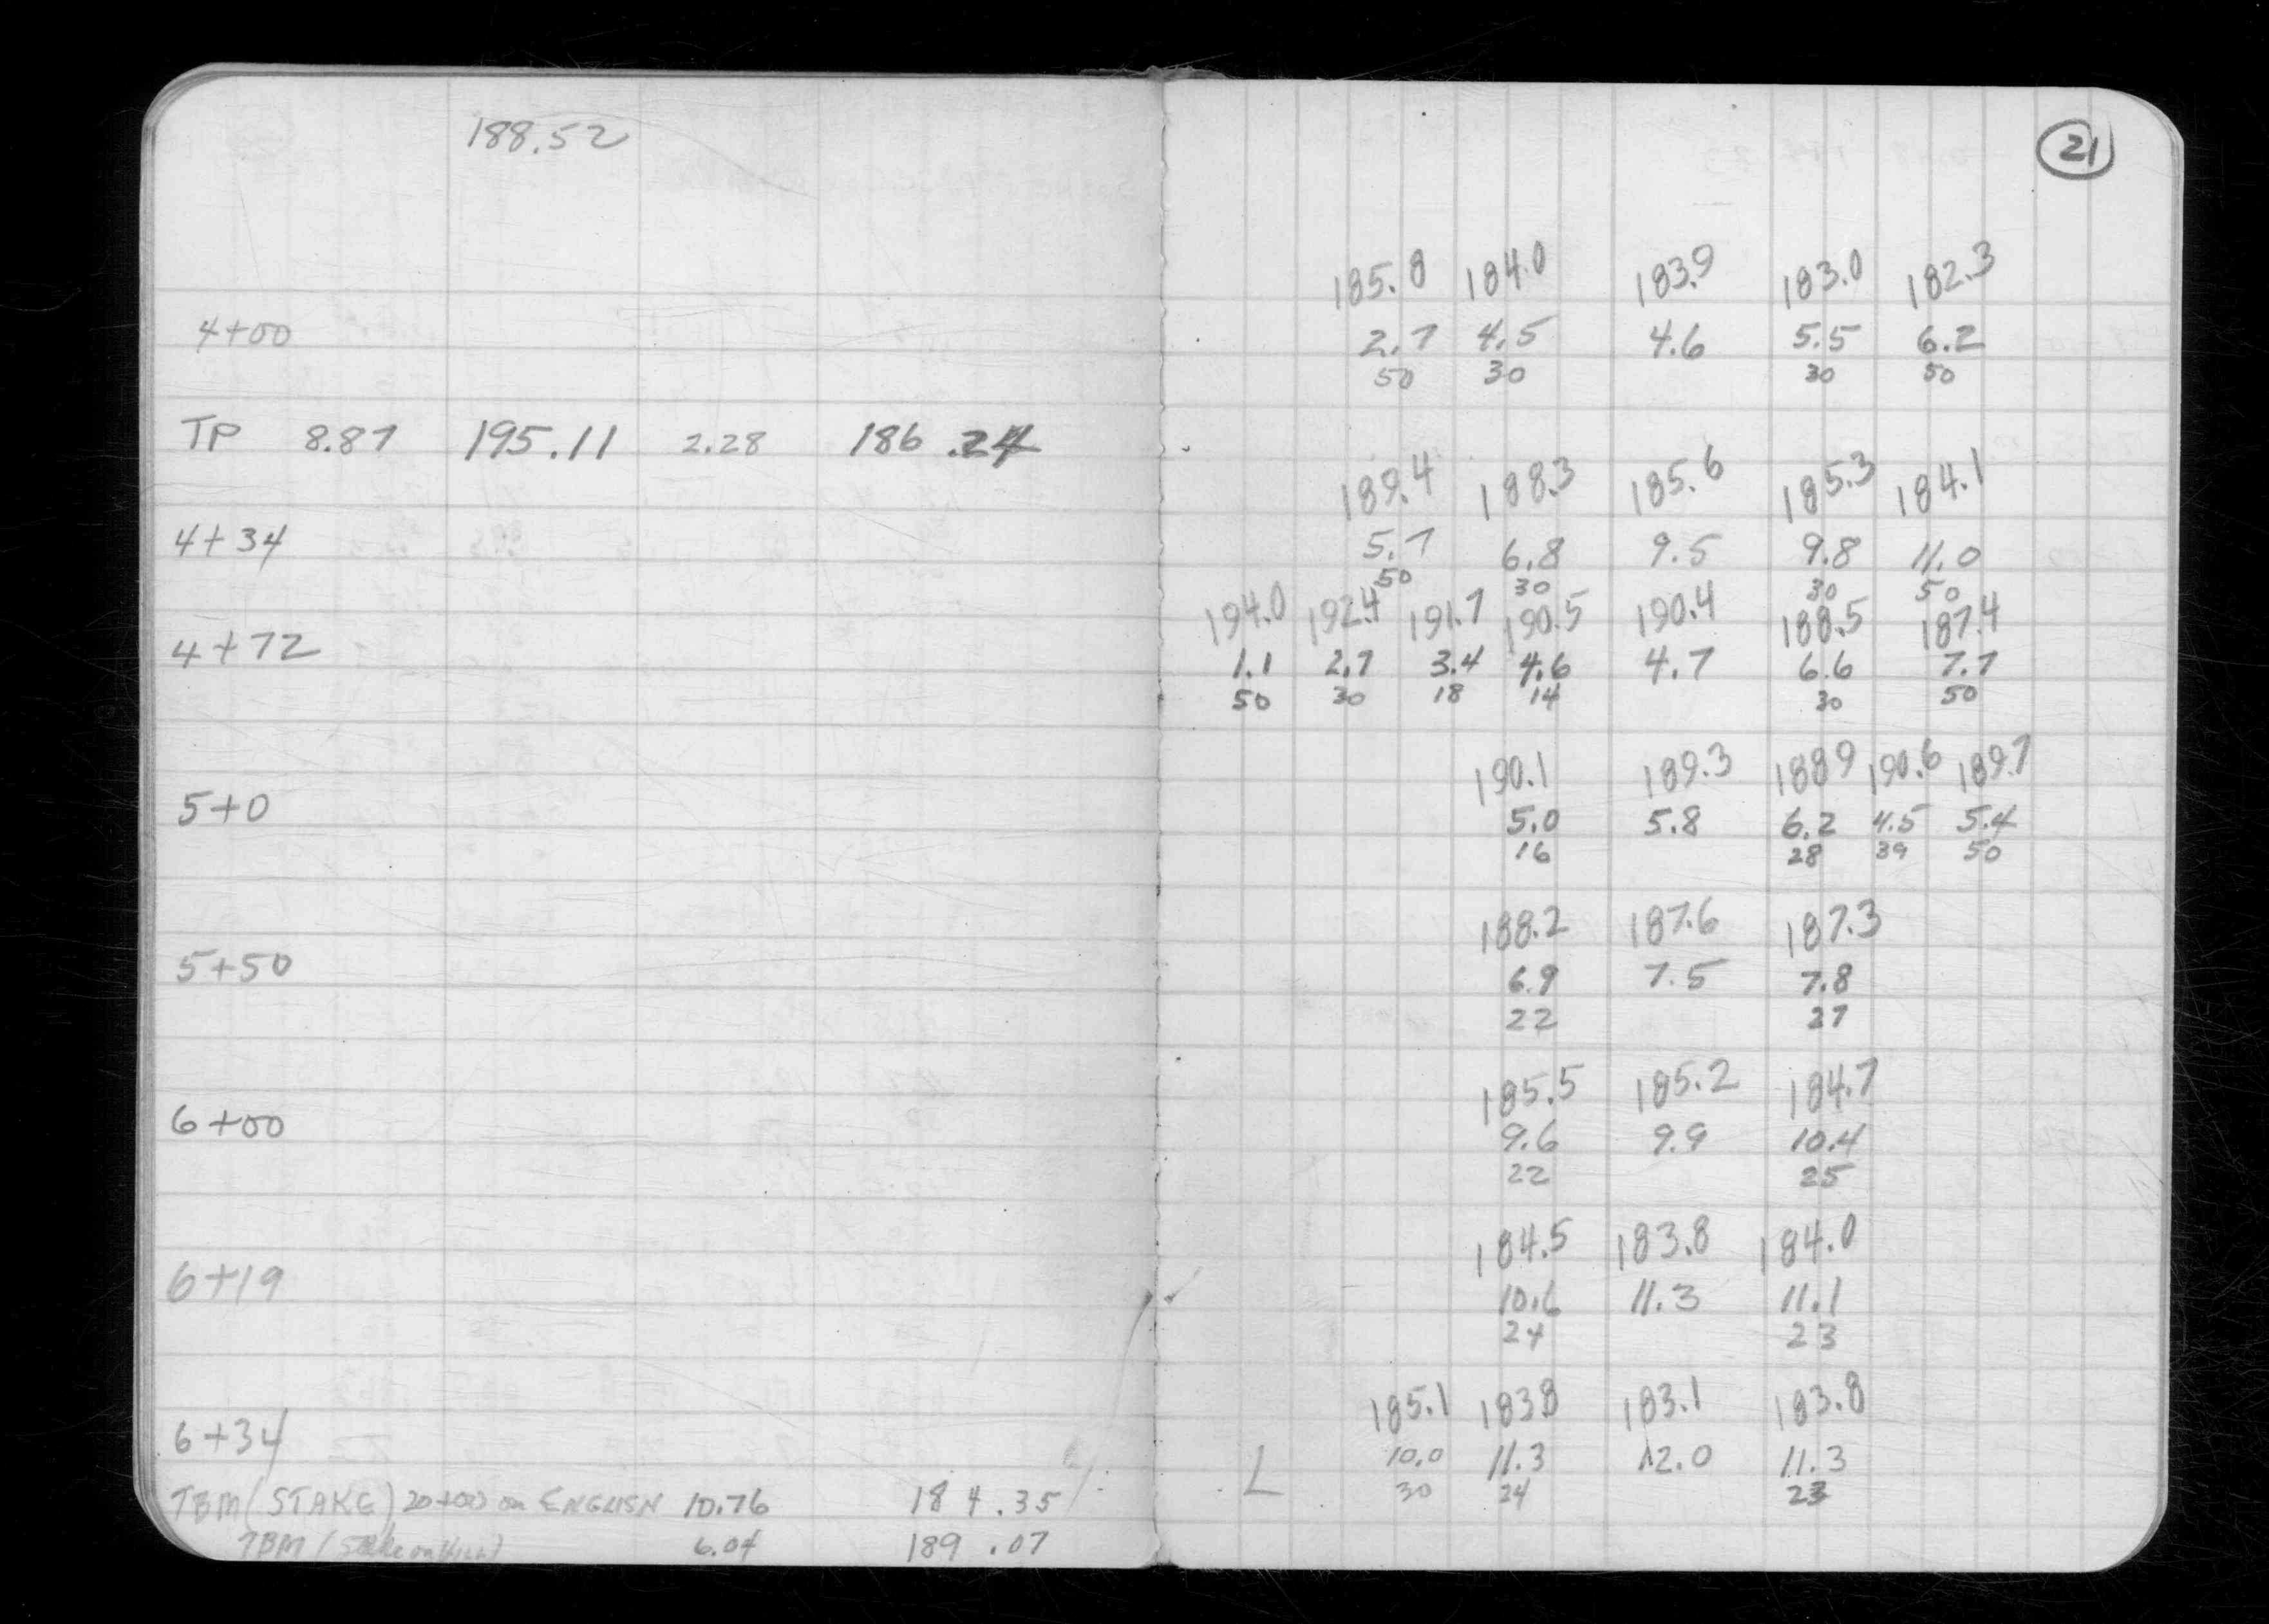 188.52
21
185.8 184.0 183.9 183.0 182.3
4+00 2.7 4.5 4.6 5.5 6.2
50 30 30 50
TP 8.87 195.11 2.28 186.24
189.4 188.3 185.6 185.3 184.1
4+34 5.7 6.8 9.5 9.8 11.0
50 30 30 50
194.0 192.4 191.7 190.5 190.4 188.5 187.4
4+72 1.1 2.7 3.4 4.6 4.7 6.6 7.7
50 30 18 14 30 50
190.1 189.3 188.9 190.6 189.7
5+0 5.0 5.8 6.2 4.5 5.4
16 28 39 50
188.2 187.6 187.3
5+50 6.9 7.5 7.8
22 27
185.5 185.2 184.7
6+00 9.6 9.9 10.4
22 25
184.5 183.8 184.0
6+19 10.6 11.3 11.1
24 23
185.1 183.8 183.1 183.8
6+34 L 10.0 11.3 12.0 11.3
30 24 23
TBM (STAKE) 20+00 on ENGLISH 10.76 184.35
TBM (Stake on 6.04 189.07